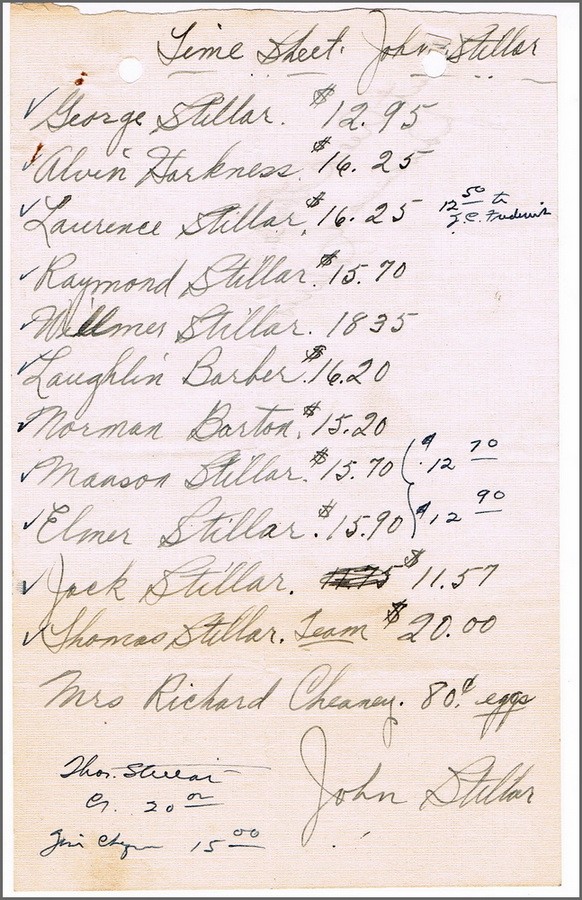 Time Sheet. John Stillar
✓ George Stillar. $12.95
✓ Alvin Harkness. $16.25
✓ Laurence Stillar. $16.25 12 50 to J.C. Frederick
✓ Raymond Stillar. $15.70
✓ Willmer Stillar. 1835
✓ Laughlin Barber. $16.20
✓ Norman Barton. $15.20
✓ Manson Stillar. $15.70 ( $12 70
✓ Elmer Stillar. $15.90 ( $12 90
✓ Jack Stillar. $11.57
✓ Thomas Stillar. Team $20.00
Mrs Richard Cheaney. 80¢ eggs
John Stillar
Thos. Stillar
20 00
15 00